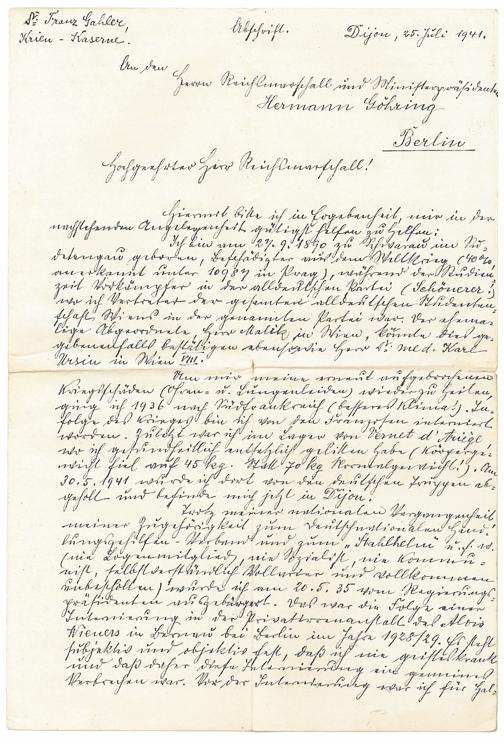 Dr. Franz Gahler,
Krien - Kaserne.
Abschrift.
Dijon, 25. Juli 1941.
An den
Herrn Reichsmarschall und Ministerpräsidenten
Hermann Göhring
Berlin
Hochgeehrter Herr Reichsmarschall!
Hiermit bitte ich in Ergebenheit, mir in der
nachstehenden Angelegenheit gütigst helfen zu wollen:
Ich bin am 27.9.1890 zu im Su-
detengau geboren, Beschädigter aus dem Weltkrieg (40%
anerkannt unter 10987 in Prag), während der Studien-
zeit Vorkämpfer in der alldeutschen Partei (Schönerer),
wo ich Vertreter der gesamten alldeutschen Studenten-
schaft Wiens in der genannten Partei war. Der ehema-
lige Abgeordnete, Herr Malik in Wien, könnte dies ge-
gebenenfalls bestätigen ebenso wie Herr Dr. med. Karl
Ursin in Wien VIII.
Um mir meine erneut aufgebrochenen
Kriegsschäden (Ohren- u. Lungenleiden) wieder zu heilen,
ging ich 1936 nach Südfrankreich (besseres Klima). In-
folge des Krieges bin ich von den Franzosen interniert
worden. Zuletzt war ich im Lager von Vernet d'Ariège
wo ich gesundheitlich entsetzlich gelitten habe (Körperge-
wicht fiel auf 45 kg. statt 70 kg Normalgewicht!). Am
30.5.1941 wurde ich dort von den deutschen Truppen ab-
geholt und befinde mich jetzt in Dijon.
Trotz meiner nationalen Vergangenheit
meiner Zugehörigkeit zum Deutschnationalen Hand-
lungsgehilfen-Verband und zum „Stahlhelm" u.s.w.
(nie Logenmitglied, nie Sozialist, nie Kommu-
nist, selbstverständlich Vollarier und vollkommen
unbescholten) wurde ich am 20.5.35 vom Regierungs-
präsidenten ausgebürgert. Das war die Folge einer
Internierung in der Privatirrenanstalt des Alois
Wieners in Bernau bei Berlin im Jahre 1928/29. Es steht
subjektiv und objektiv fest, daß ich nie geisteskrank
und daß daher diese Internierung ein gemeines
Verbrechen war. Vor der Internierung war ich für Hal-